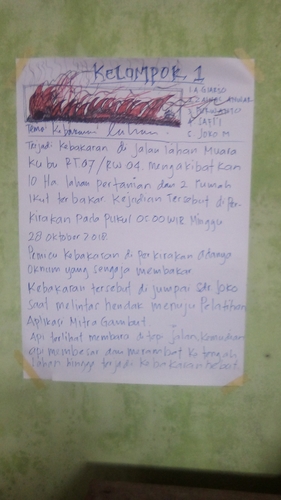 KELOMPOK 1
1 A GIARSO
5 JOKO M
Tema: Kebakaran lahan.
Terjadi Kebakaran di Jalan Tahan Muara
Kubu RT.07/RW 04. mengakibatkan
10 Ha. lahan pertanian dan 2 rumah
Ikut terbakar. Kejadian Tersebut di Per-
kirakan Pada Pukul 05.00 WIB Minggu
28 Oktober 2018.
Pemicu Kebakaran di perkirakan adanya
Oknum yang sengaja membakar
Kebakaran tersebut di jumpai Sdr Joko
Saat melintas hendak menuju Pelatihan
Aplikasi Mitra Gambut.
Api terlihat membara di tepi Jalan, Kemudian
api membesar dan merambat ke tengah
lahan hingga terjadi Kebakaran hebat